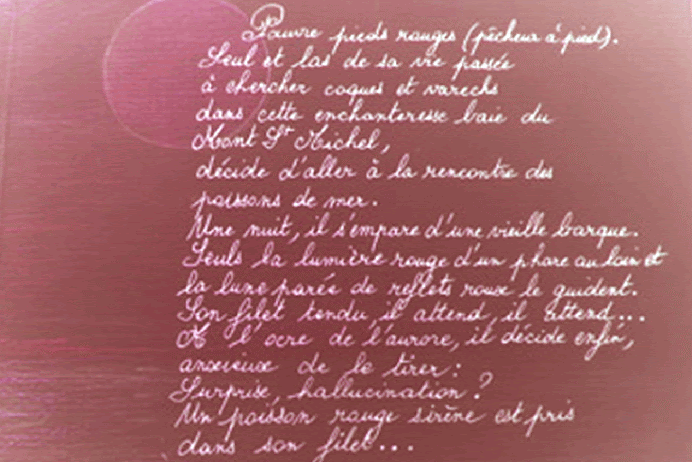 Pauvre pieds rouges (pêcheur à pied).
Seul et las de sa vie passée
à chercher coques et varechs
dans cette enchanteresse baie du
Mont St Michel,
décide d'aller à la rencontre des
poissons de mer.
Une nuit, il s'empare d'une vieille barque.
Seuls la lumière rouge d'un phare au loin et
la lune parée de reflets roux le guident.
Son filet tendu, il attend, il attend...
A l'ocre de l'aurore, il décide enfin,
anxieux de le tirer :
Surprise, hallucination ?
Un poisson rouge sirène est pris
dans son filet...